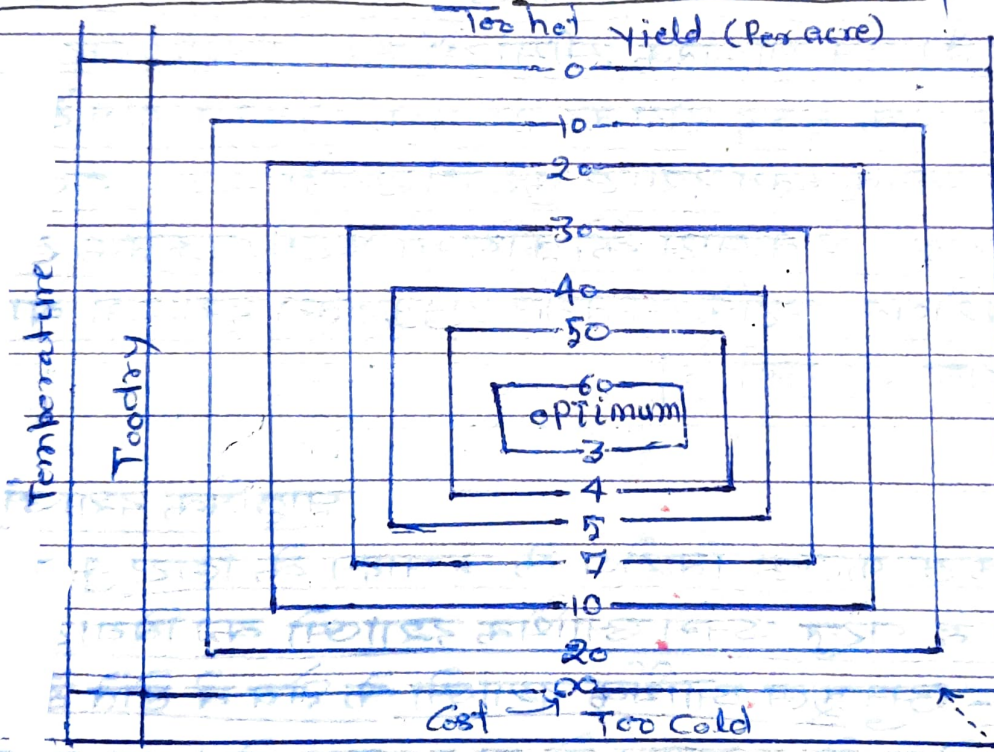 Too hot yield (Per acre)
0
10
20
30
40
50
60
optimum
3
4
5
7
10
20
00
Cost → Too Cold
Temborature
Toodry